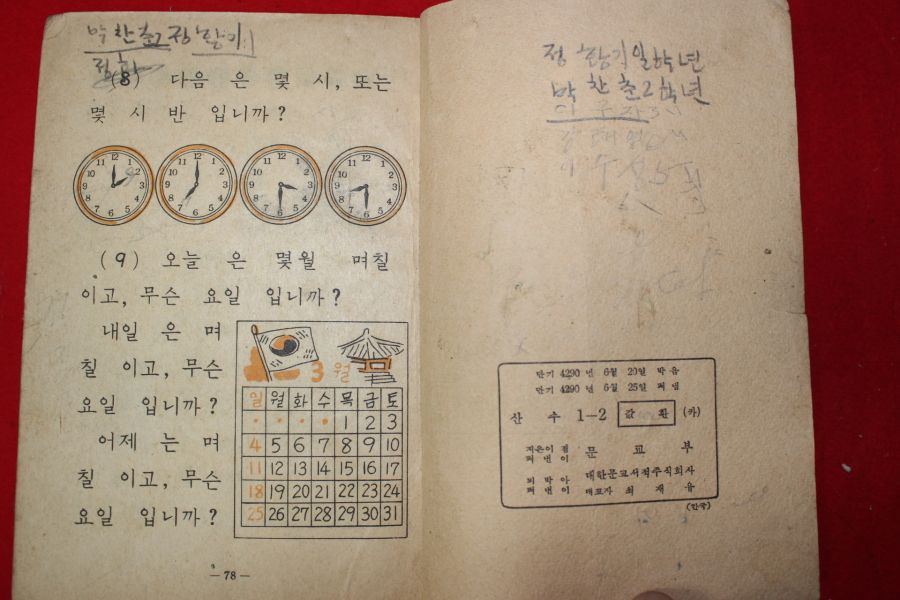 박찬호2 정황기1
정황
(8) 다음 은 몇 시, 또는
몇 시 반 입니까?
(9) 오늘 은 몇월 며칠
이고, 무슨 요일 입니까?
내일 은 며
칠 이고, 무슨
요일 입니까?
어제 는 며
칠 이고, 무슨
요일 입니까?
3 월
일 월 화 수 목 금 토
1 2 3
4 5 6 7 8 9 10
11 12 13 14 15 16 17
18 19 20 21 22 23 24
25 26 27 28 29 30 31
— 78 —
정 황기일학년
박 찬 호2학년
단기 4290 년 6월 20일 박음
단기 4290 년 6월 25일 펴냄
산 수 1—2 값 환 (카)
지은이 겸 펴낸이 문 교 부
되박아 펴낸이 대한문교서적주식회사
대표자 최 재 유